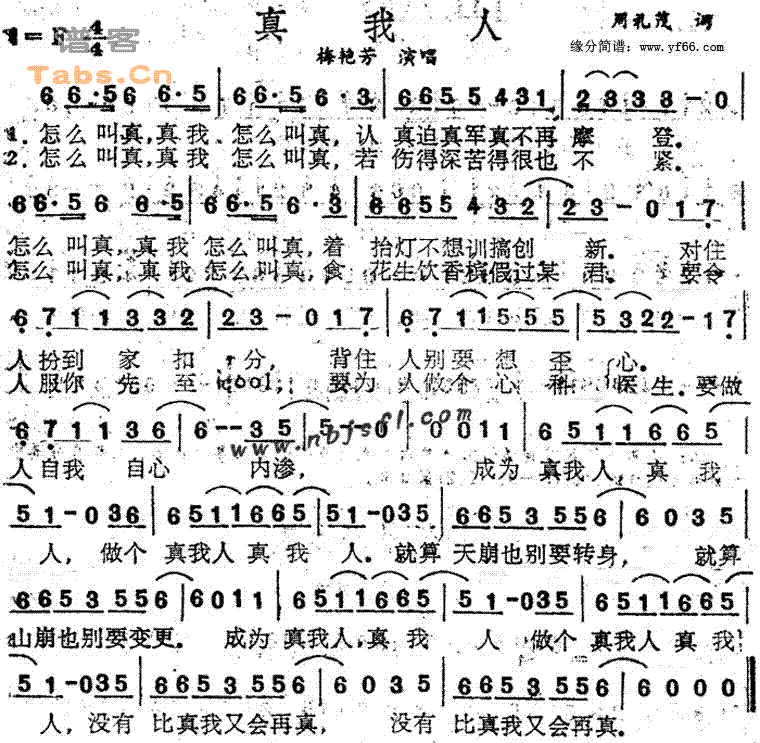 真 我 人
1=F 4/4
谱客
Tabs.Cn
周礼茂 词
缘分简谱:www.yf66.com
梅艳芳 演唱
6 6 6·5 6 6·5 | 6 6·5 6·3 | 6 6 5 5 4 3 1 | 2 3 3 3 - 0
1.怎么叫真,真我 怎么叫真,认 真迫真军真不再 摩 登.
2.怎么 叫真,真我 怎么叫真,若 伤得深苦得很也 不 紧.
6 6·5 6 6·5 | 6 6·5 6·3 | 6 6 5 5 4 3 2 | 2 3 - 0 1 7
怎么 叫真,真我 怎么叫真,着 抬灯不想训搞创 新. 对住
怎么 叫真,真我 怎么叫真,食 花生饮香槟假过某 君. 要令
6 7 1 1 3 3 2 | 2 3 - 0 1 7 | 6 7 1 1 5 5 5 | 5 3 2 2 - 1 7
人扮到 家 扣 分, 背住 人别要 想 歪 心.
人服你 先 至 cool, 要为 人做个 心 科 医 生.要做
6 7 1 1 3 6 | 6 - - 3 5 | 5 - 0 | 0 0 1 1 | 6 5 1 1 6 6 5
www.nbfsfl.com
人自我 自心 内渗, 成为 真我人,真 我
5 1 - 0 3 6 | 6 5 1 1 6 6 5 | 5 1 - 0 3 5 | 6 6 5 3 5 5 6 | 6 0 3 5
人, 做个 真我人真 我 人. 就算 天崩也别要转身, 就算
6 6 5 3 5 5 6 | 6 0 1 1 | 6 5 1 1 6 6 5 | 5 1 - 0 3 5 | 6 5 1 1 6 6 5
山崩也别要变更. 成为 真我人,真 我 人 做个 真我人 真我
5 1 - 0 3 5 | 6 6 5 3 5 5 6 | 6 0 3 5 | 6 6 5 3 5 5 6 | 6 0 0 0
人,没有 比真我又会再真, 没有 比真我又会再真.